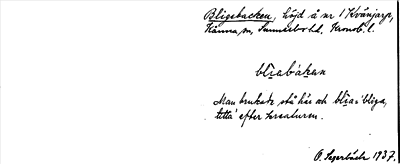 Bligsbacken, höjd å nr 1 Kvänjarp,
Känna sn, Sunnerbo hd, Kronob. l.
blīabákan
Man brukade stå här och blīa 'bliga,
titta' efter kreaturen.
O. Segerbäck 1937.